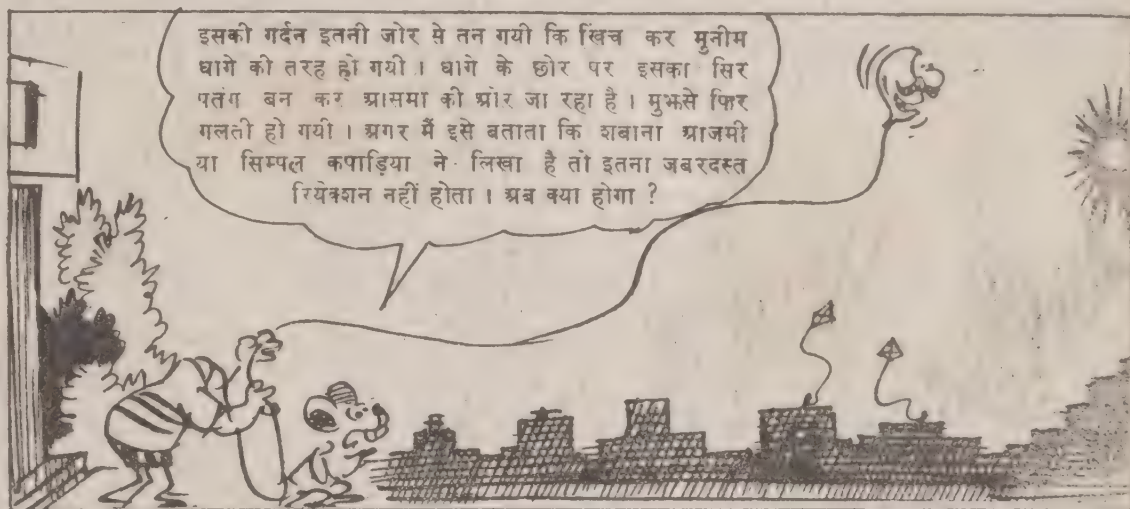 इसकी गर्दन इतनी जोर से तन गयी कि खिंच कर मुनीम
धागे की तरह हो गयी । धागे के छोर पर इसका सिर
पतंग बन कर आसमा की ओर जा रहा है । मुझसे फिर
गलती हो गयी । अगर मैं इसे बताता कि शबाना आजमी
या सिम्पल कपाड़िया ने लिखा है तो इतना जबरदस्त
रियेक्शन नहीं होता । अब क्या होगा ?